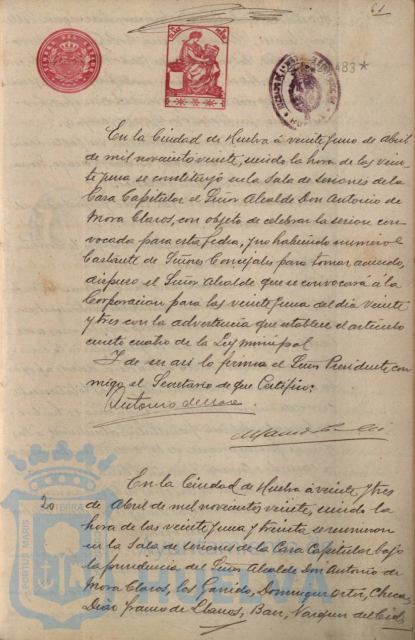 61
483*
En la Ciudad de Huelva á veinte y uno de Abril
de mil novecientos veinte, siendo la hora de las vein-
te y una se constituyó en la Sala de sesiones de la
Casa Capitular el Señor Alcalde Don Antonio de
Mora Claros, con objeto de celebrar la sesion con-
vocada para esta fecha, y no habiendo numero
bastante de Señores Concejales para tomar acuerdo,
dispuso el Señor Alcalde que se convocará á la
Corporacion para las veinte y una del dia veinte
y tres con la advertencia que establece el articulo
ciento cuatro de la Ley municipal
Y de ser asi lo firma el Señor Presidente con-
migo el Secretario de que Certifico:
Antonio de Mora
En la Ciudad de Huelva á veinte y tres
de Abril de mil novecientos veinte, siendo la
hora de las veinte y una y treinta se reunieron
en la Sala de sesiones de la Casa Capitular, bajo
la presidencia del Señor Alcalde Don Antonio de
Mora Claros, los Garrido, Dominguez Ortiz, Checa,
Diaz Franco de Llanos, Barr, Vazquez del Cid
PORTUS MARIS